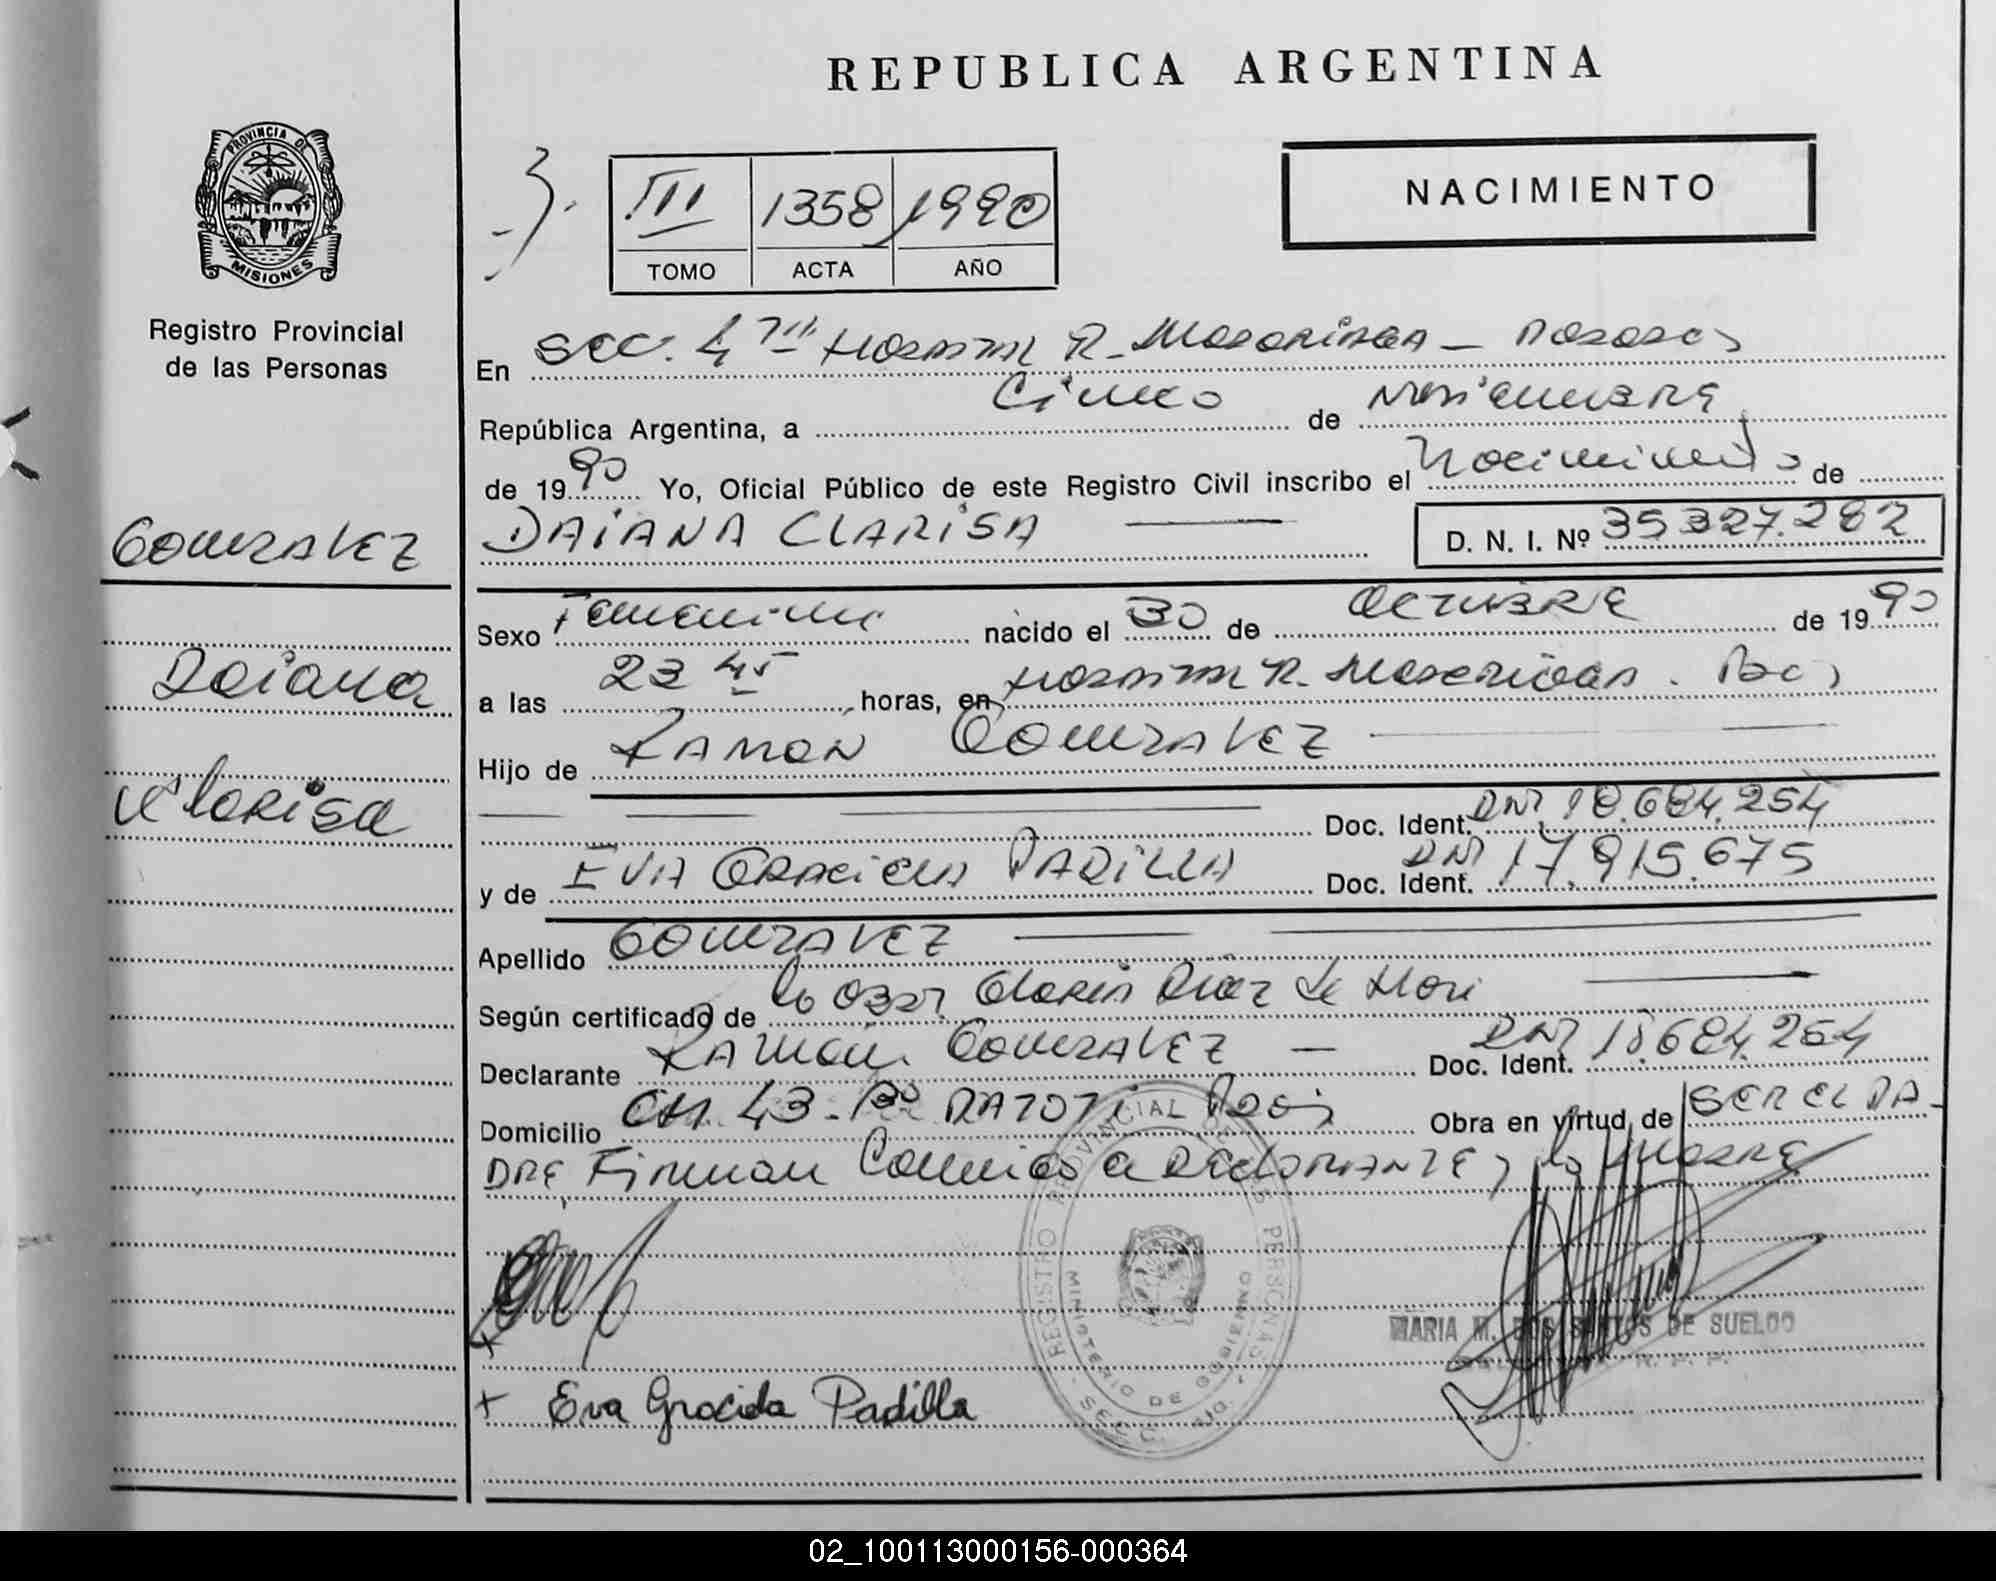 REPUBLICA ARGENTINA
PROVINCIA DE
MISIONES
Registro Provincial
de las Personas
NACIMIENTO
III 1358 1990
TOMO ACTA AÑO
En Sec. 4 Hospital R. Madariaga - Posadas
República Argentina, a Cinco de Noviembre
de 1990 Yo, Oficial Público de este Registro Civil inscribo el Nacimiento de
GONZALEZ
DAIANA CLARISA D. N. I. Nº 35327.282
Sexo Femenino nacido el 30 de OCTUBRE de 1990
Daiana
a las 23 45 horas, en Hospital R. Madariaga. Pdas
Hijo de RAMON GONZALEZ
Clarisa
Doc. Ident. DNI 18.684.254
y de EVA GRACIELA PADILLA Doc. Ident. DNI 17.915.675
Apellido GONZALEZ
Según certificado de la Obst. Gloria Diaz de
Declarante RAMON GONZALEZ - Doc. Ident. DNI 18.684.254
Domicilio CH 43 - Bo Pdas Obra en virtud de SER EL PA-
DRE, Firman Conmigo el DECLARANTE y la MADRE
REGISTRO PROVINCIAL DE LAS PERSONAS
MINISTERIO DE GOBIERNO
MARIA M. DOS SANTOS DE SUELDO
+
+ Eva Graciela Padilla
02_100113000156-000364